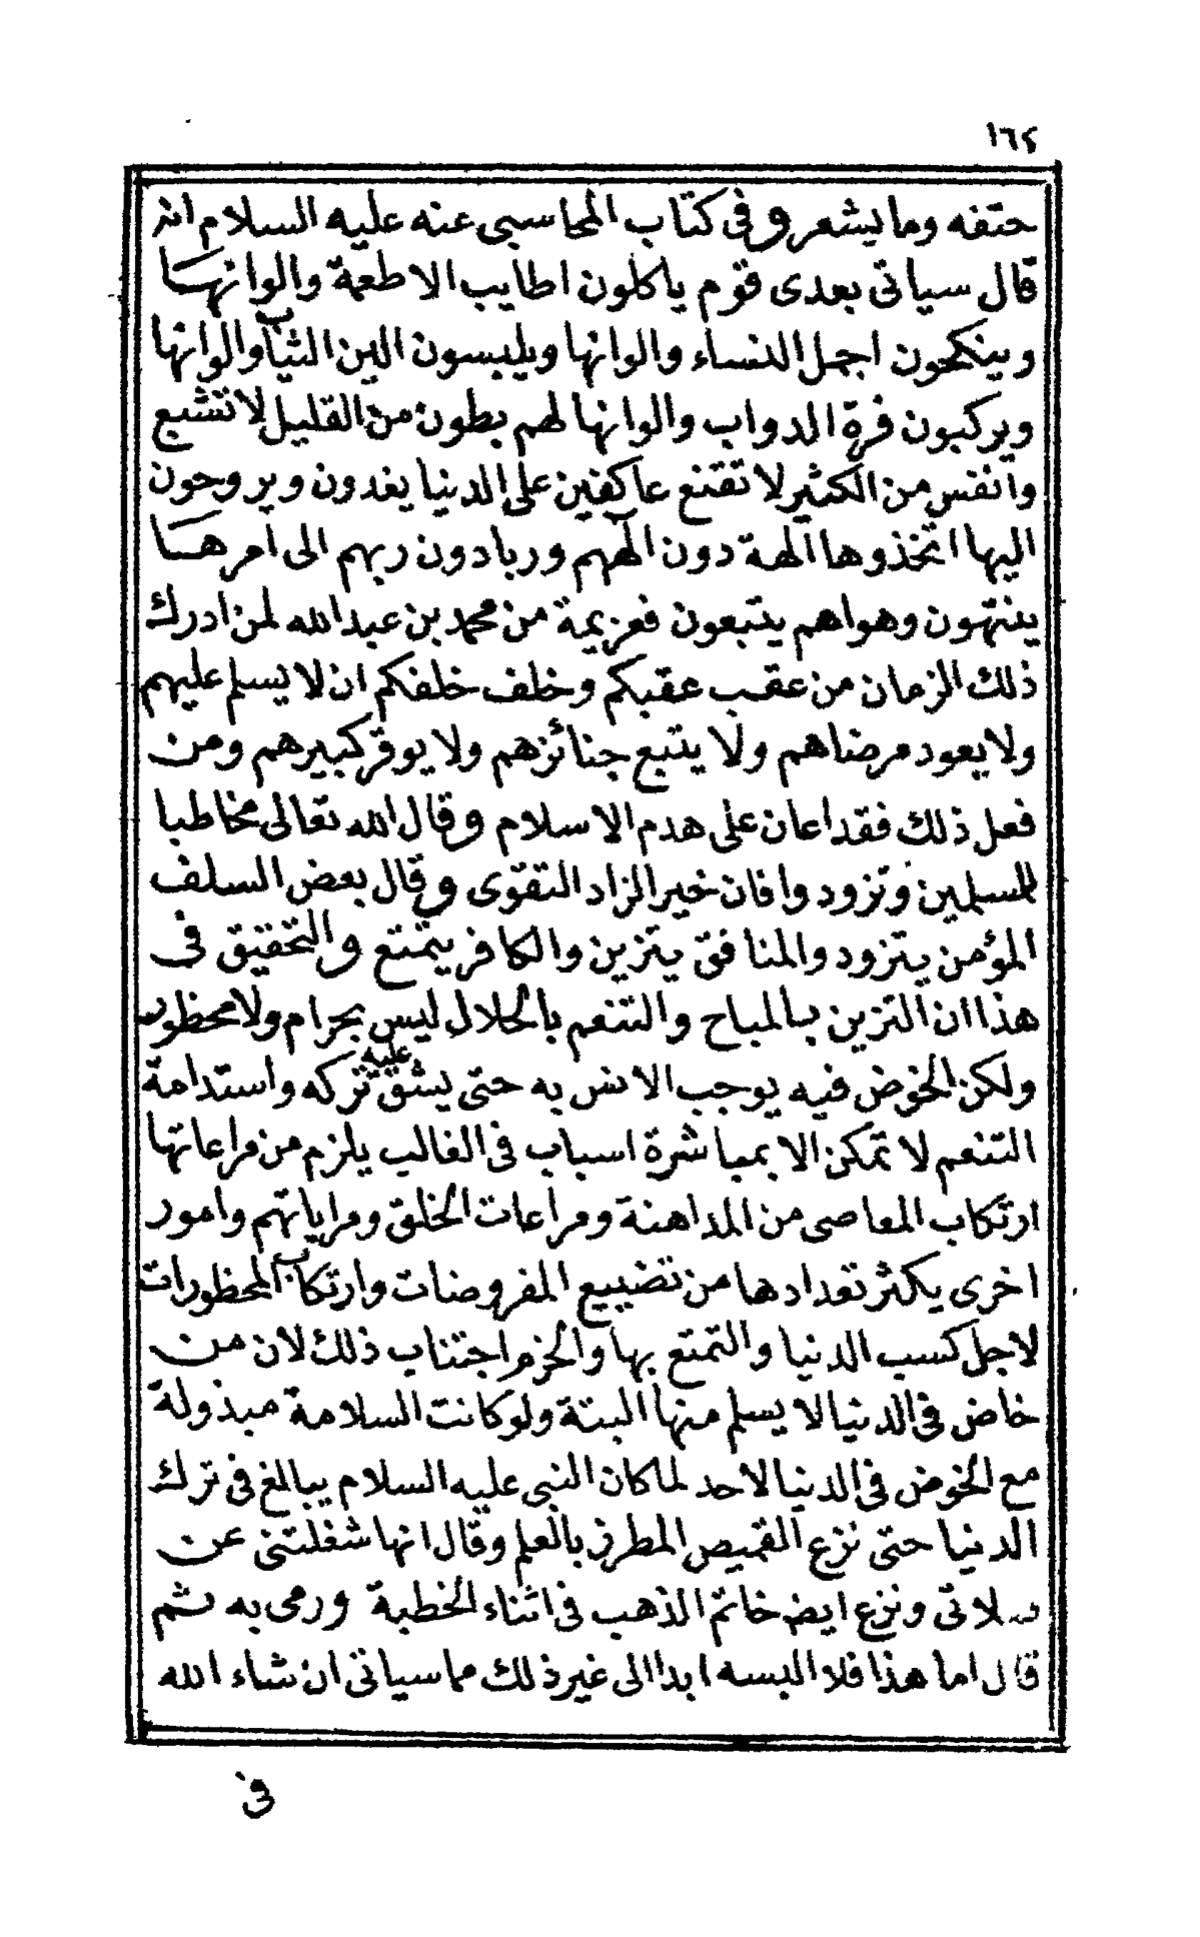 ١٦٤
حتفه وما يشعر وفى كتاب المحاسبى عنه عليه السلام انه
قال سياتى بعدى قوم ياكلون اطايب الاطعمة والوانها
وينكحون اجمل النساء والوانها ويلبسون الين الثياب والوانها
ويركبون فرة الدواب والوانها لهم بطون من القليل لا تشبع
وانفس من الكثير لا تقنع عاكفين على الدنيا يغدون ويروحون
اليها اتخذوها آلهة دون الههم وربا دون ربهم الى امرها
ينتهون وهواهم يتبعون فعزيمة من محمد بن عبد الله لمن ادرك
ذلك الزمان من عقب عقبكم وخلف خلفكم ان لا يسلم عليهم
ولا يعود مرضاهم ولا يتبع جنائزهم ولا يوقر كبيرهم ومن
فعل ذلك فقد اعان على هدم الاسلام وقال الله تعالى مخاطبا
للمسلمين وتزودوا فان خير الزاد التقوى وقال بعض السلف
المؤمن يتزود والمنافق يتزين والكافر يتمتع والتحقيق فى
هذا ان التزين بالمباح والتنعم بالحلال ليس بحرام ولا محظور
ولكن الخوض فيه يوجب الانس به حتى يشق عليه تركه واستدامة
التنعم لا تمكن الا بمباشرة اسباب فى الغالب يلزم من مراعاتها
ارتكاب المعاصى من المداهنة ومراعات الخلق ومراياتهم وامور
اخرى يكثر تعدادها من تضييع المفروضات وارتكاب المحظورات
لاجل كسب الدنيا والتمتع بها والحزم اجتناب ذلك لان من
خاض فى الدنيا لا يسلم منها البتة ولو كانت السلامة مبذولة
مع الخوض فى الدنيا لاحد لما كان النبى عليه السلام يبالغ فى ترك
الدنيا حتى نزع القميص المطرز بالعلم وقال انها شغلتنى عن
صلاتى ونزع ايضا خاتم الذهب فى اثناء الخطبة ورمى به ثم
قال اما هذا فلا البسه ابدا الى غير ذلك مما سياتى ان شاء الله
فى